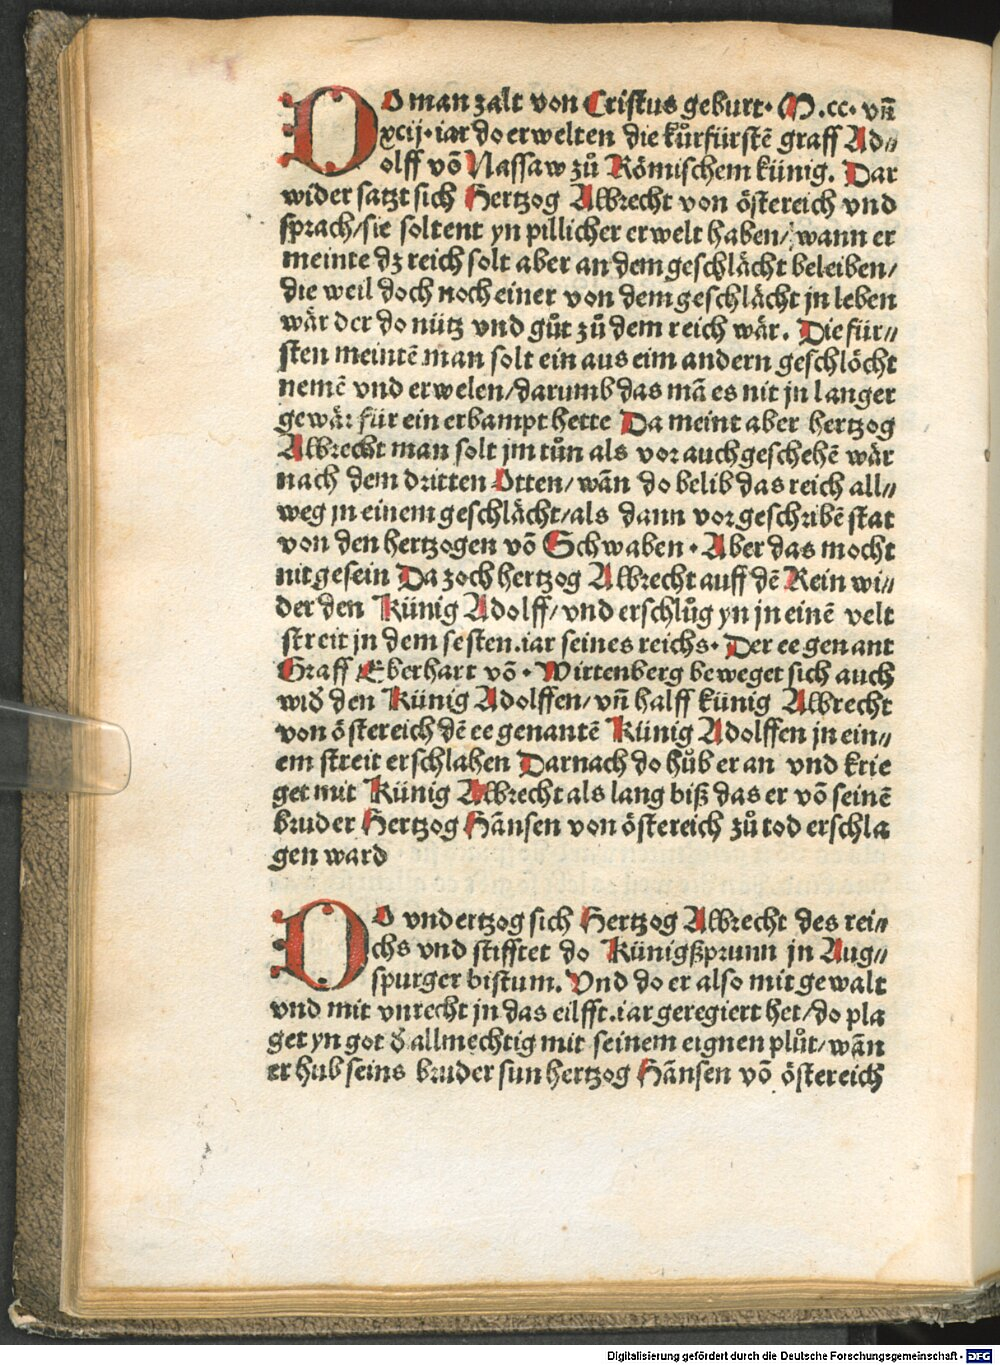 DO man zalt von Cristus geburt· M.cc· vñ
xcij·iar do erwelten die kůrfürstē graff Ad⸗
olff vō Nassaw zů Römischem künig. Dar
wider satzt sich Hertzog Albrecht von östereich vnd
sprach/sie soltent yn pillicher erwelt haben/ wann er
meinte dz reich solt aber an dem geschlächt beleiben/
die weil doch noch einer von dem geschlächt jn leben
wär der do nütz vnd gůt zů dem reich wär. Die für⸗
sten meintē man solt ein aus eim andern geschlöcht
nemē vnd erwelen/darumb das mā es nit jn langer
gewär für ein erbampt hette Da meint aber hertzog
Albrecht man solt jm tůn als vor auch geschehē wär
nach dem dritten Otten/ wān do belib das reich all⸗
weg jn einem geschlächt/als dann vor geschribē stat
von den hertzogen vō Schwaben · Aber das mocht
nit gesein Da zoch hertzog Albrecht auff dē Rein wi⸗
der den Künig Adolff/ vnd erschlůg yn jn einē velt
streit jn dem sesten.iar seines reichs· Der ee genant
Graff Eberhart vō · Wirtenberg beweget sich auch
wid̕ den Künig Adolffen/ vñ halff künig Albrecht
von östereich dē ee genantē Künig Adolffen jn ein⸗
em streit erschlahen Darnach do hůb er an vnd krie
get mit Künig Albrecht als lang biß das er vō seinē
bruder Hertzog Hānsen von östereich zů tod erschla
gen ward
DO vndertzog sich Hertzog Albrecht des rei⸗
chs vnd stifftet do Künigßprunn jn Aug⸗
spurger bistum. Vnd do er also mit gewalt
vnd mit vnrecht jn das eilfft.iar geregiert het/do pla
get yn got d̕ allmechtig mit seinem eignen plůt/ wān
er hub seins bruder sun hertzog Hānsen vō östereich
Digitalisierung gefördert durch die Deutsche Forschungsgemeinschaft - DFG